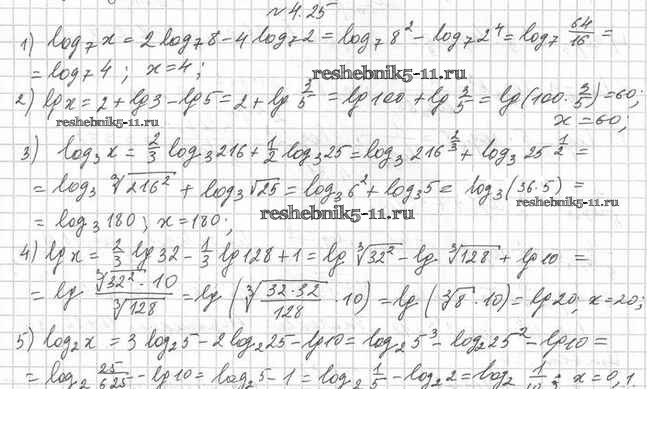 № 4.25
1) log₇ x = 2 log₇ 8 - 4 log₇ 2 = log₇ 8² - log₇ 2⁴ = log₇ 64/16 =
= log₇ 4 ; x = 4 ;
reshebnik5-11.ru
2) lg x = 2 + lg 3 - lg 5 = 2 + lg 3/5 = lg 100 + lg 3/5 = lg (100 · 3/5) = 60;
reshebnik5-11.ru x = 60;
3) log₃ x = 2/3 log₃ 216 + 1/2 log₃ 25 = log₃ 216^(2/3) + log₃ 25^(1/2) =
= log₃ ∛216² + log₃ √25 = log₃ 6² + log₃ 5 = log₃ (36·5) =
= log₃ 180 ; x = 180 ;
reshebnik5-11.ru
4) lg x = 2/3 lg 32 - 1/3 lg 128 + 1 = lg ∛32² - lg ∛128 + lg 10 =
= lg ∛32² · 10 / ∛128 = lg (∛(32·32/128) · 10) = lg (∛8 · 10) = lg 20; x = 20;
5) log₂ x = 3 log₂ 5 - 2 log₂ 25 - lg 10 = log₂ 5³ - log₂ 25² - lg 10 =
= log₂ 25/625 - lg 10 = log₂ 5 - 1 = log₂ 1/5 - log₂ 2 = log₂ 1/10 ; x = 0,1.